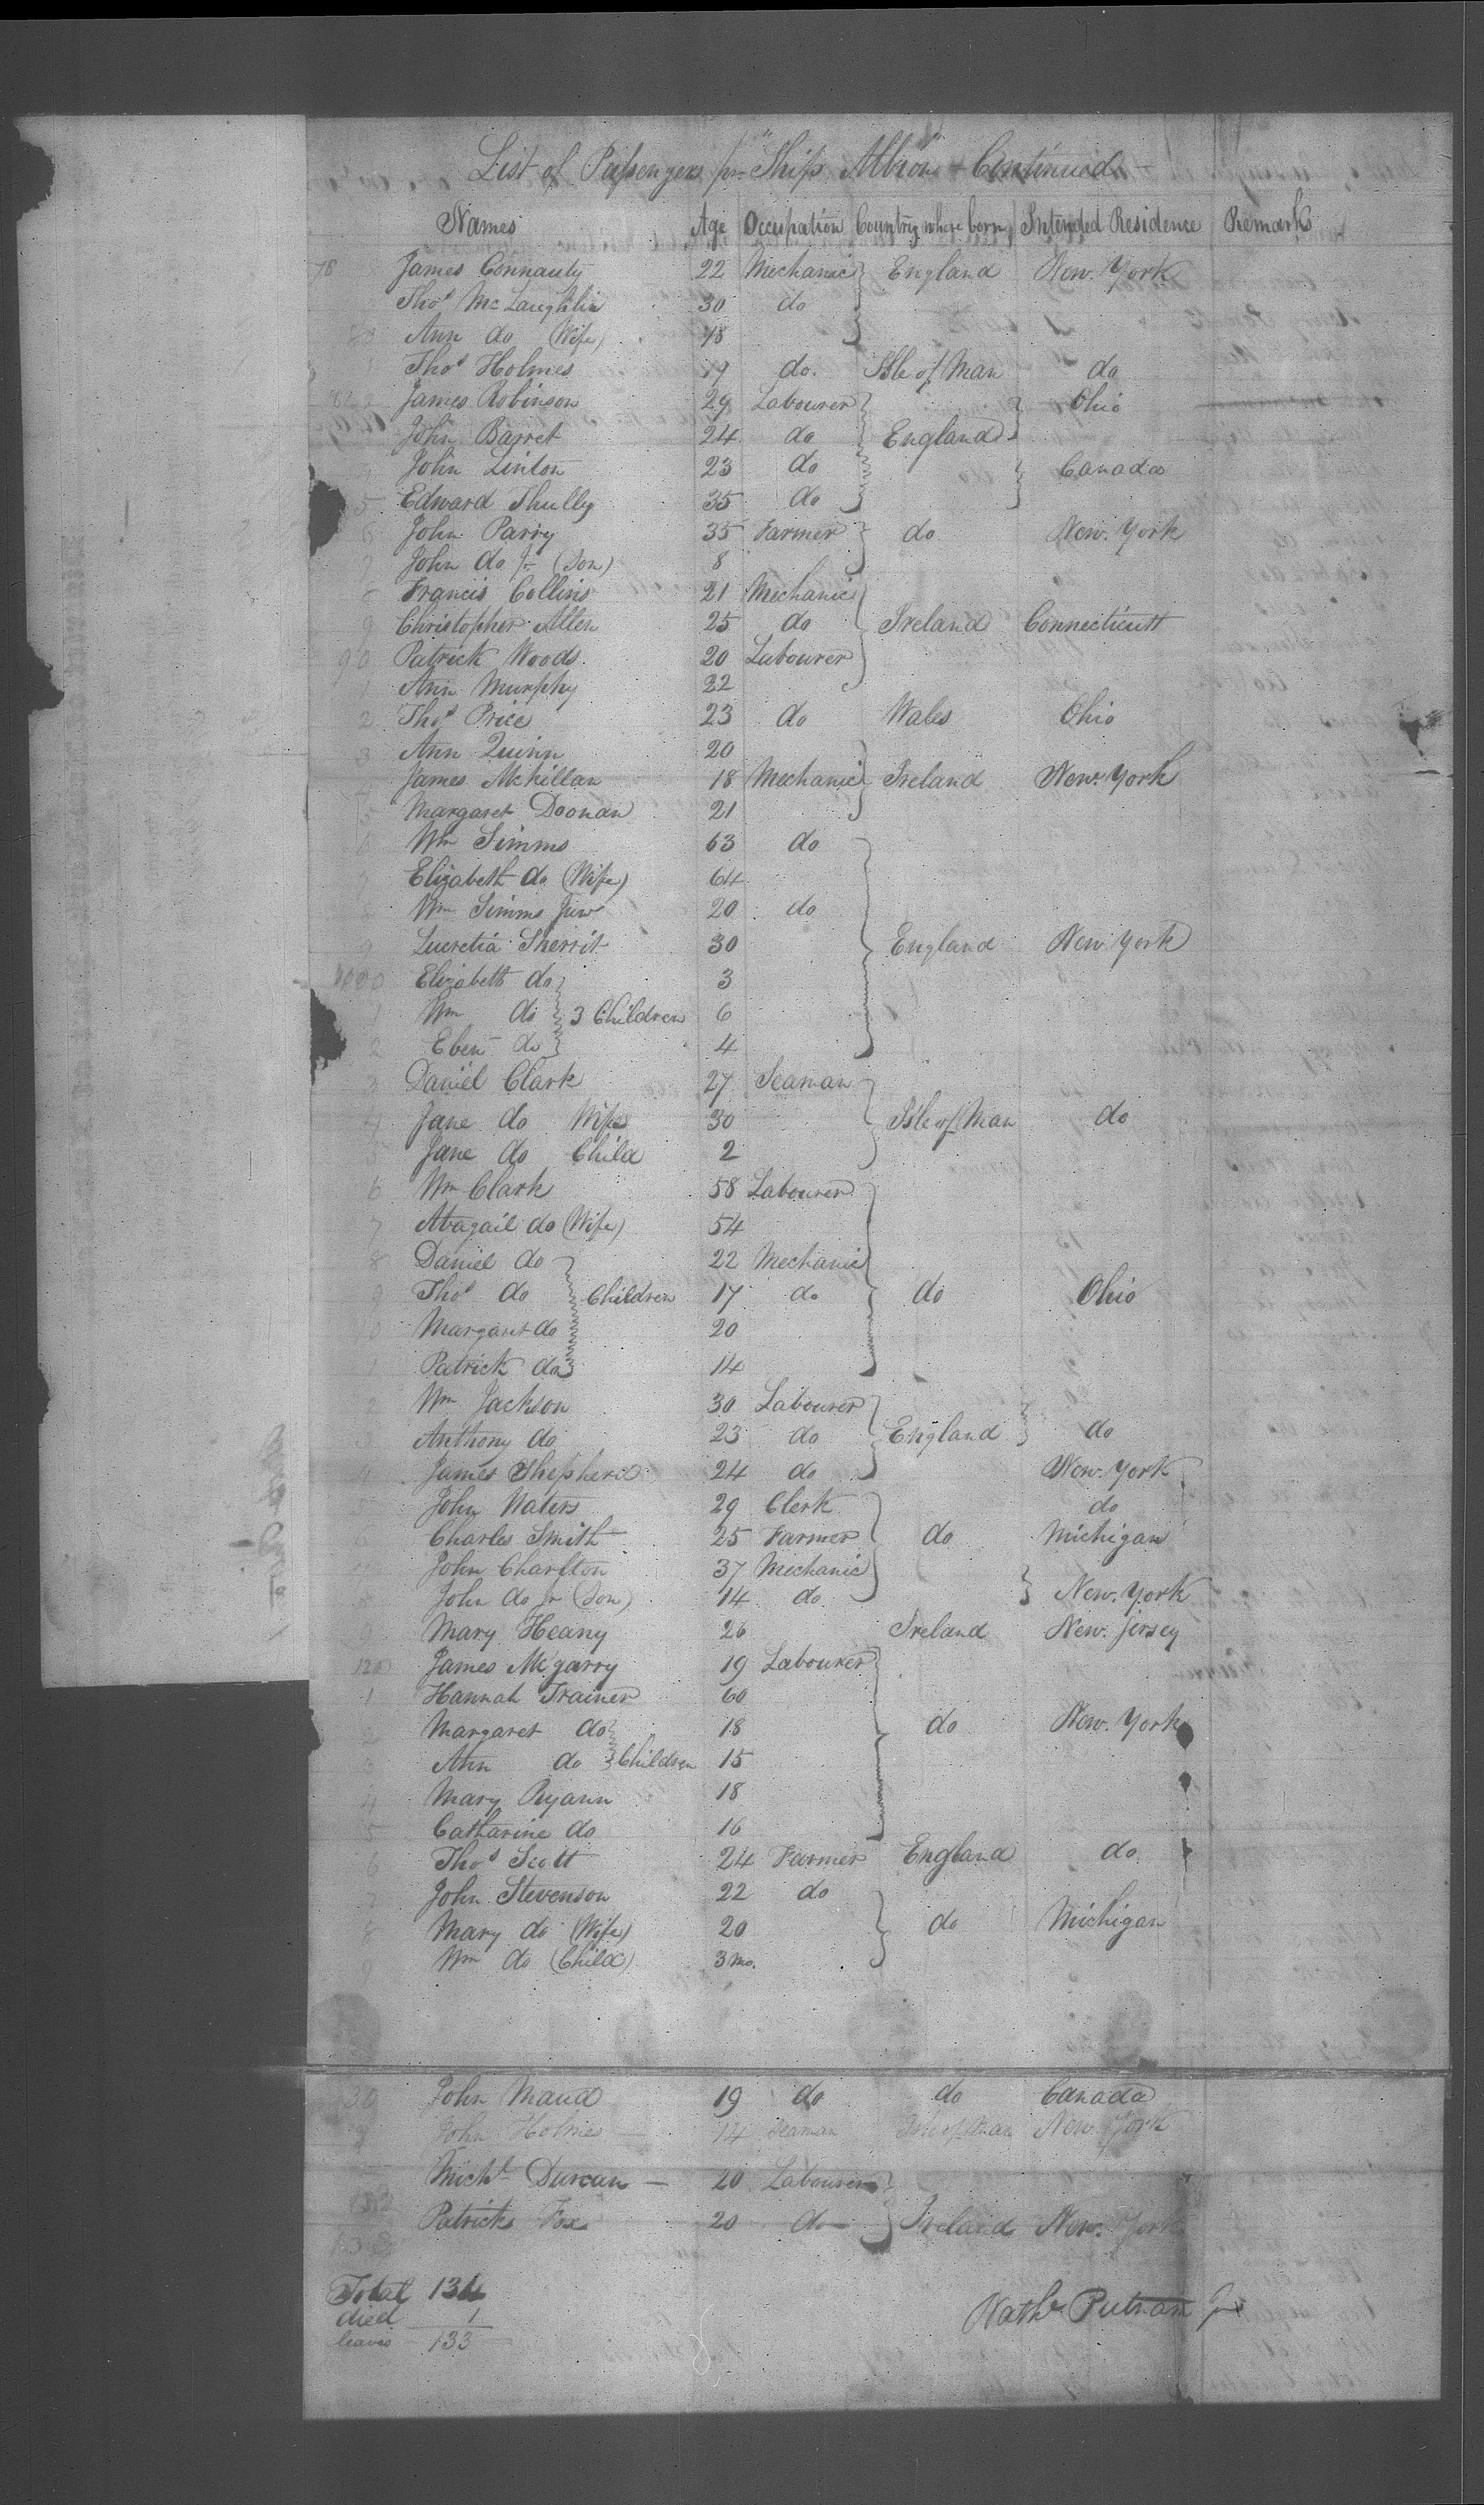 List of Passengers pr Ship "Albion" Continued
Names Age Occupation Country where born Intended Residence Remarks
78 James Connauty 22 Mechanic England New York
Thos McLaughlin 30 do
80 Ann do (Wife) 18
Thos Holmes 19 do. Isle of Man do
James Robinson 29 Labourer Ohio
John Barret 24 do England
John Linton 23 do Canada
5 Edward Shully 35 do
6 John Parry 35 Farmer do New York
7 John do Jr (Son) 8
8 Francis Collins 21 Mechanic
9 Christopher Allen 25 do Ireland Connecticutt
90 Patrick Woods 20 Labourer
1 Ann Murphy 22
2 Thos Price 23 do Wales Ohio
3 Ann Quinn 20
James McKillan 18 Mechanic Ireland New York
5 Margaret Doonan 21
6 Wm Simms 63 do
7 Elizabeth do (Wife) 64
8 Wm Simms Junr 20 do
9 Lucretia Sherrit 30 England New York
Elizabeth do 3
1 Wm do 3 Children 6
2 Eben do 4
3 Daniel Clark 27 Seaman
4 Jane do Wife 30 Isle of Man do
5 Jane do Child 2
6 Wm Clark 58 Labourer
7 Abagail do (Wife) 54
8 Daniel do 22 Mechanic
9 Thos do Children 17 do do Ohio
10 Margaret do 20
1 Patrick do 14
2 Wm Jackson 30 Labourer
3 Anthony do 23 do England do
4 James Shepherd 24 do New York
5 John Waters 29 Clerk do
Charles Smith 25 Farmer do Michigan
John Charlton 37 Mechanic
John do Jr (Son) 14 do New York
Mary Heany 26 Ireland New Jersey
120 James McGarry 19 Labourer
1 Hannah Trainer 60
2 Margaret do 18 do New York
3 Ann do Children 15
4 Mary Ryann 18
5 Catharine do 16
6 Thos Scott 24 Farmer England do
7 John Stevenson 22 do
8 Mary do (Wife) 20 do Michigan
9 Wm do (Child) 3 mo.
30 John Maud 19 do do Canada
John Holmes 14 Seaman Isle of Man New York
Michl Durcan 20 Labourer
Patrick Fox 20 do Ireland New York
Total 134
died 1
leaves 133
Nathl Putnam Jr